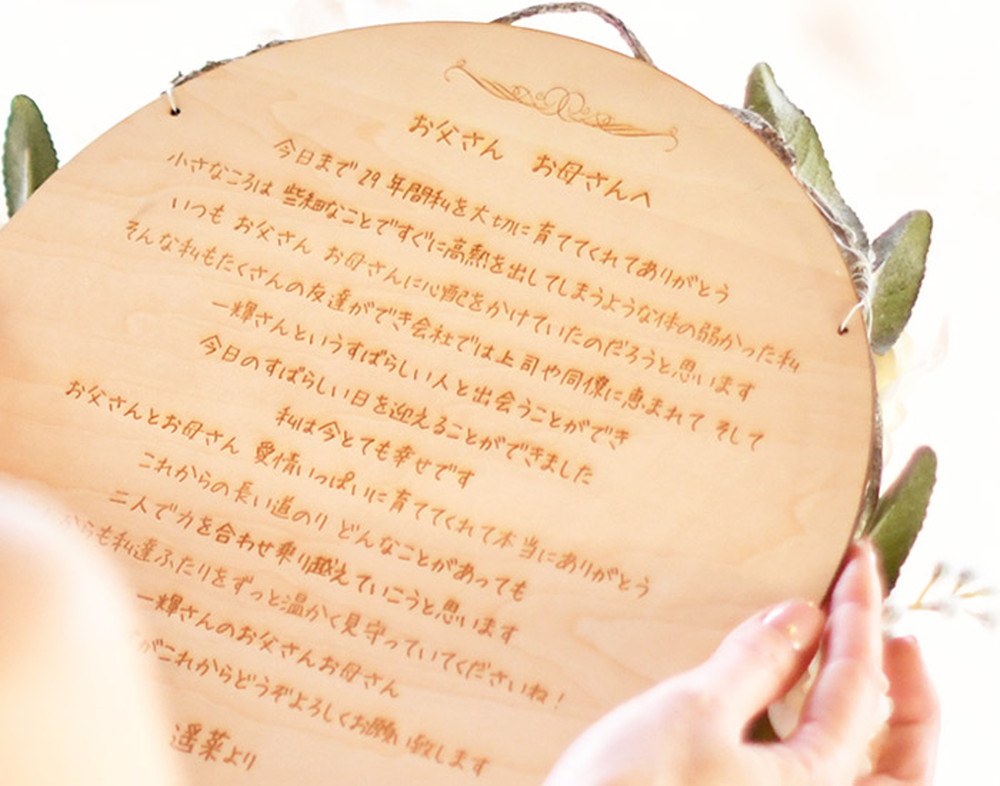 お父さん お母さんへ
今日まで 29 年間私を大切に育ててくれてありがとう
小さなころは 些細なことですぐに高熱を出してしまうような体の弱かった私
いつも お父さん お母さんに心配をかけていたのだろうと思います
そんな私もたくさんの友達ができ会社では上司や同僚に恵まれて そして
一輝さんというすばらしい人と出会うことができ
今日のすばらしい日を迎えることができました
私は今とても幸せです
お父さんとお母さん 愛情いっぱいに育ててくれて本当にありがとう
これからの長い道のり どんなことがあっても
二人で力を合わせ乗り越えていこうと思います
からも私達ふたりをずっと温かく見守っていてくださいね！
一輝さんのお父さんお母さん
がこれからどうぞよろしくお願い致します
遥菜より